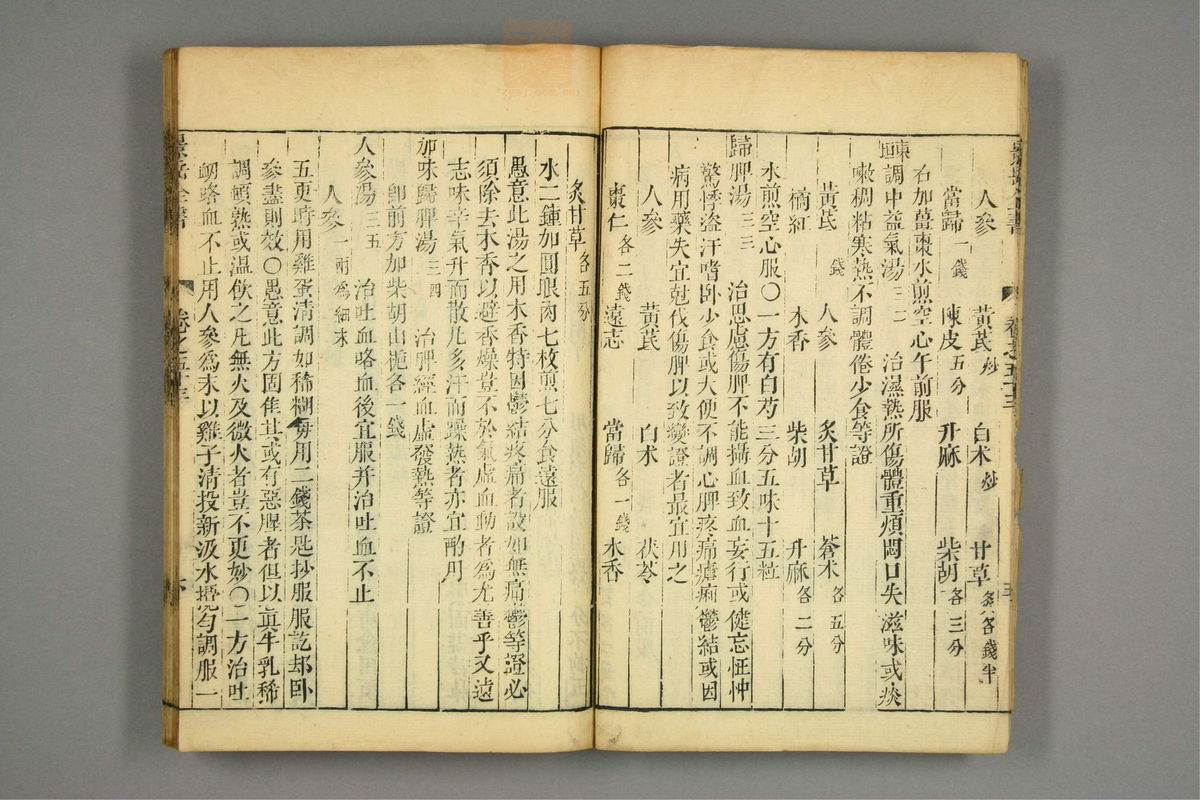 人參 黃芪炒 白朮炒 甘草炙各錢半
當歸一錢 陳皮五分 升麻 柴胡各三分
右加薑棗水煎空心午前服
東垣調中益氣湯三二 治濕熱所傷體重煩悶口失滋味或痰
嗽稠粘寒熱不調體倦少食等證
黃芪錢 人參 炙甘草 蒼朮各五分
橘紅 木香 柴胡 升麻各二分
水煎空心服〇一方有白芍三分五味十五粒
歸脾湯三三 治思慮傷脾不能攝血致血妄行或健忘怔忡
驚悸盜汗嗜臥少食或大便不調心脾疼痛瘧痢鬱結或因
病用藥失宜尅伐傷脾以致變證者最宜用之
人參 黃芪 白朮 茯苓
棗仁各二錢 遠志 當歸各一錢 木香
炙甘草各五分
水二鍾加圓眼肉七枚煎七分食遠服
愚意此湯之用木香特因鬱結疼痛者設如無痛鬱等證必
須除去木香以避香燥豈不於氣虛血動者爲尤善乎又遠
志味辛氣升而散凡多汗而躁熱者亦宜酌用
加味歸脾湯三四 治脾經血虛發熱等證
卽前方加柴胡山梔各一錢
人參湯三五 治吐血咯血後宜服并治吐血不止
人參一兩爲細末
五更時用雞蛋清調如稀糊毎用二錢茶匙抄服服訖却臥
參盡則效〇愚意此方固佳其或有惡腥者但以眞牛乳稀
調頓熟或溫飲之凡無火及微火者豈不更妙〇一方治吐
衂咯血不止用人參爲末以雞子清投新汲水攪勻調服一
景岳全書 卷之五十三